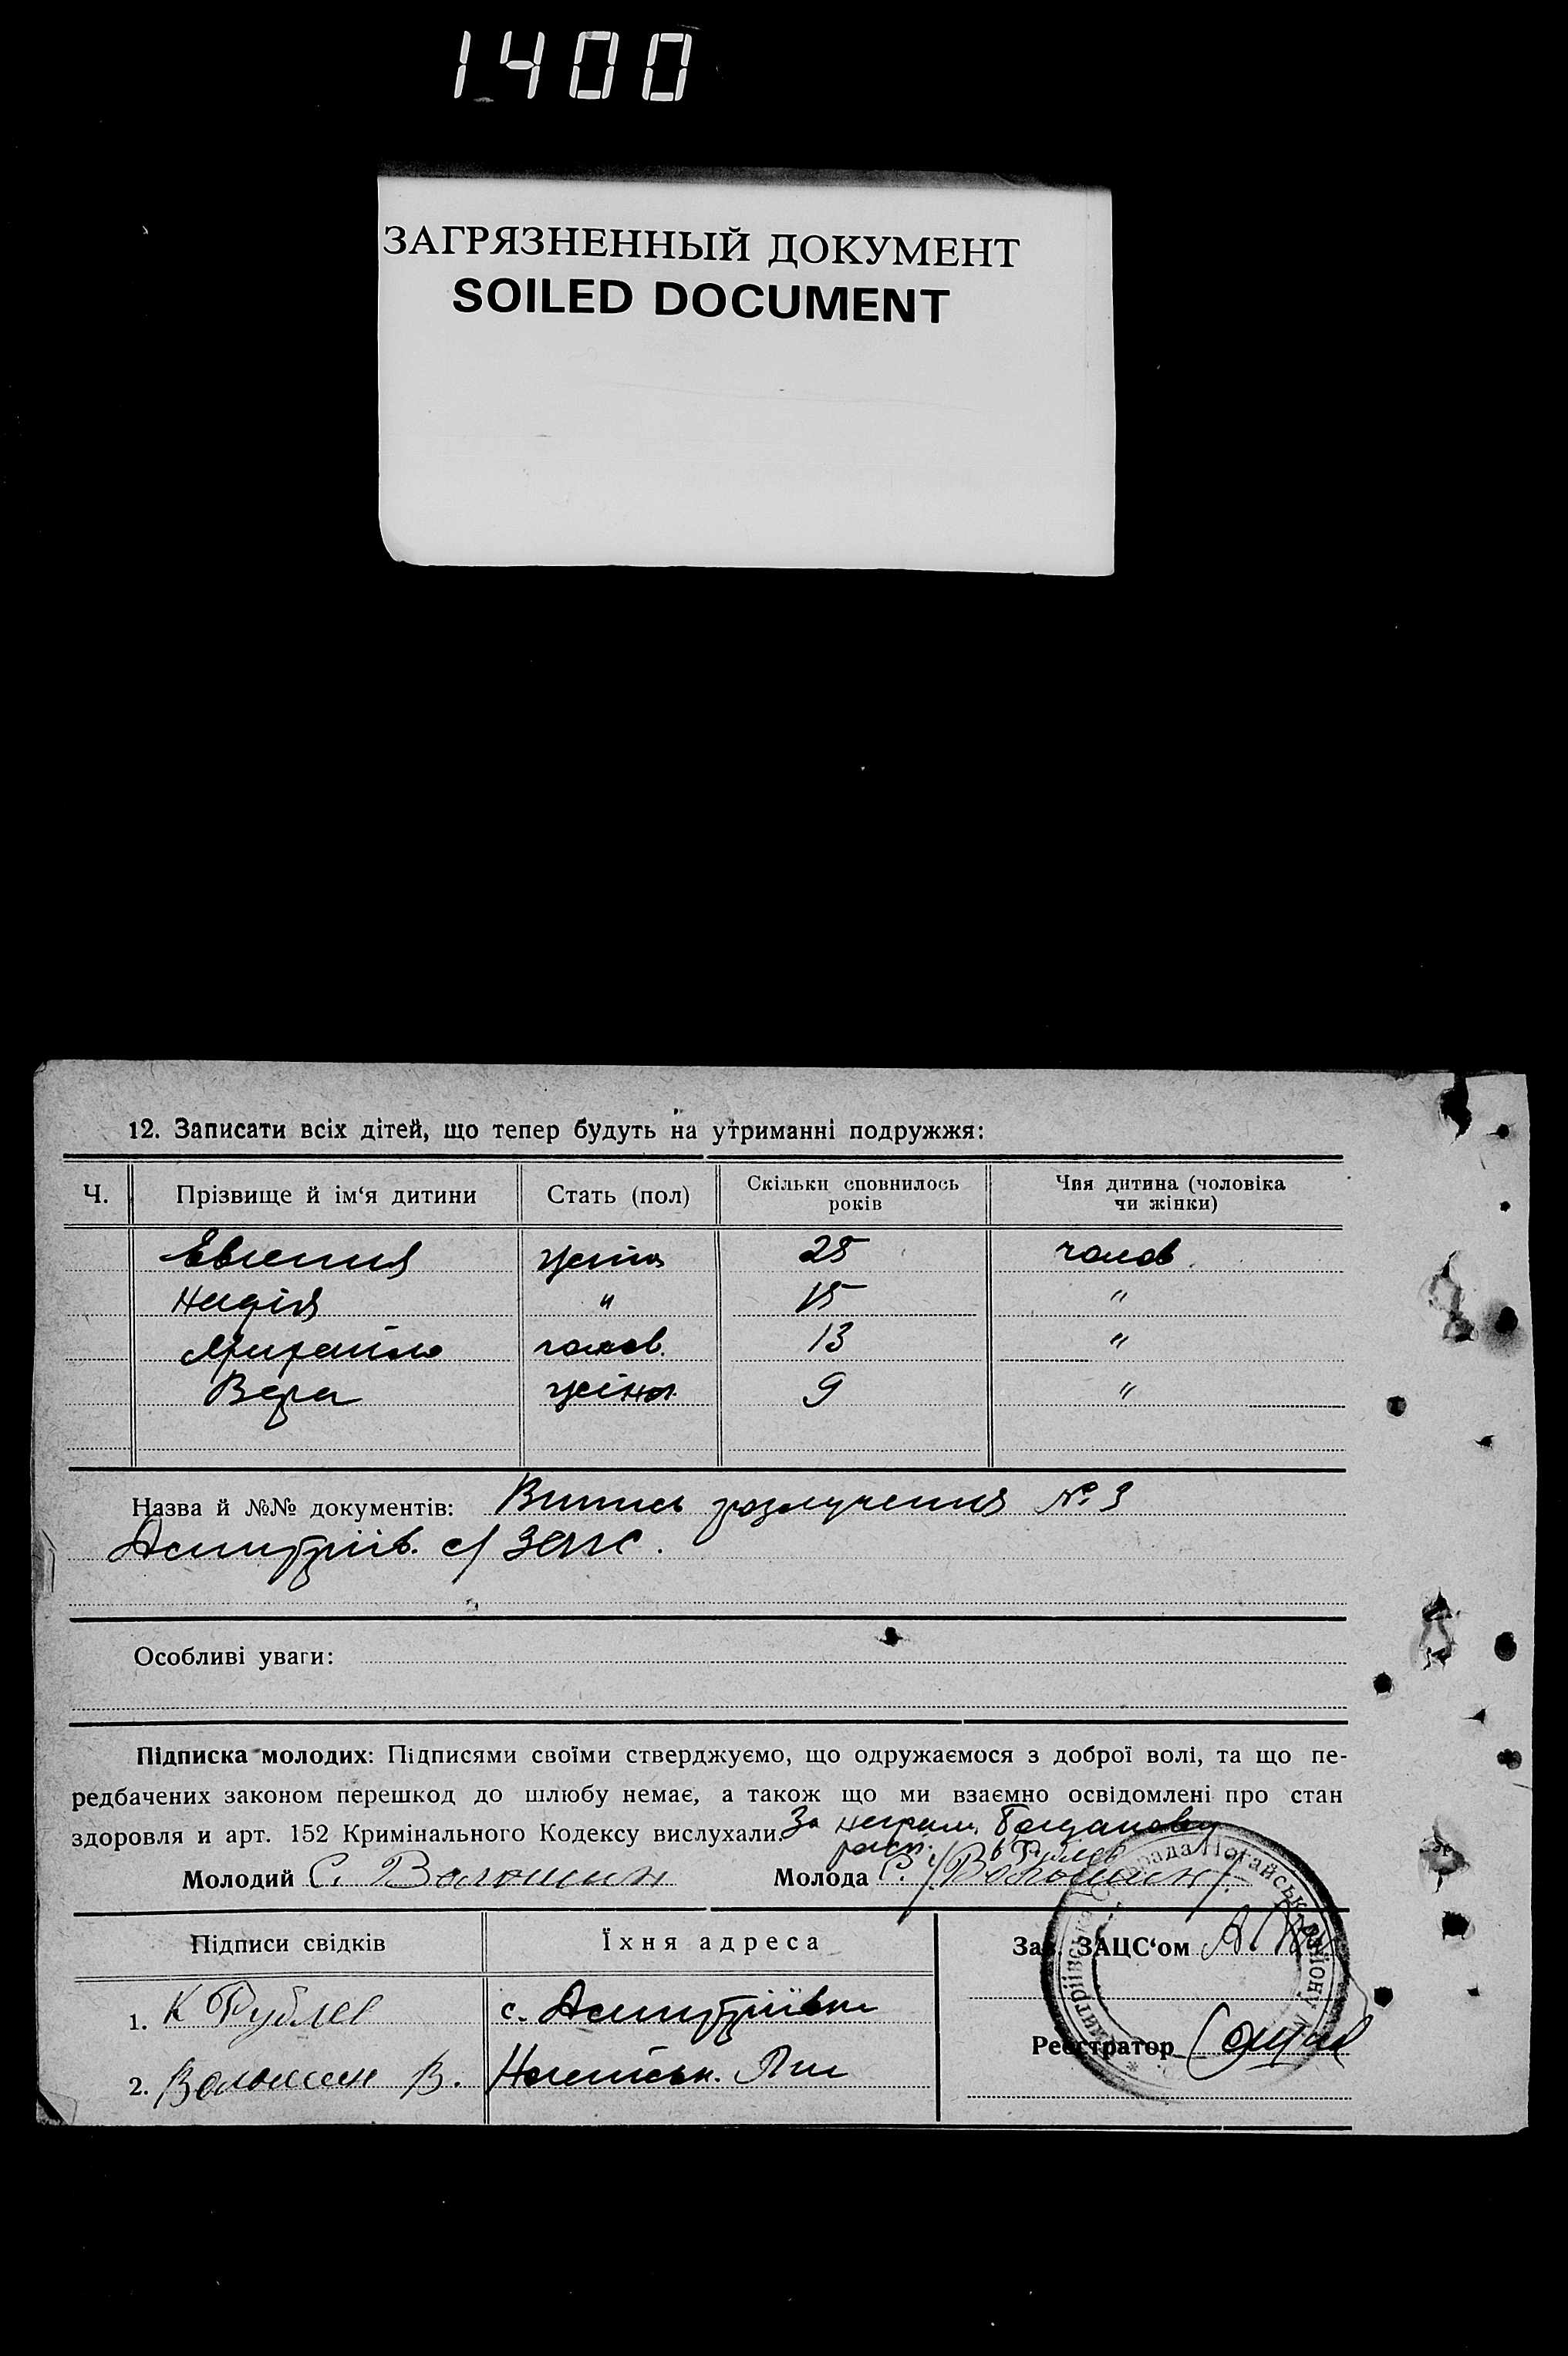 1400
ЗАГРЯЗНЕННЫЙ ДОКУМЕНТ
SOILED DOCUMENT
12. Записати всіх дітей, що тепер будуть на утриманні подружжя:
Ч. Прізвище й ім‘я дитини Стать (пол) Скільки сповнилось років Чия дитина (чоловіка чи жінки)
Евгения 25 чолов
Надія " 15 "
Михайло чолов. 13 "
Вера жіноч. 9 "
Назва й №№ документів: Випись разлучения № 3
Дмитріїв. с/ загс.
Особливі уваги:
Підписка молодих: Підписями своїми стверджуємо, що одружаємося з доброї волі, та що пе-
редбачених законом перешкод до шлюбу немає, а також що ми взаємно освідомлені про стан
здоровля и арт. 152 Кримінального Кодексу вислухали. За неграм.
расп. Рублев
Молодий С. Волошин Молода С. /Волошин/
Підписи свідків Їхня адреса Зав. ЗАЦС‘ом
1. К Рублев с. Дмитріївка
2. Волошин В. Ногайськ.
Реєстратор
рада Ногайськ району